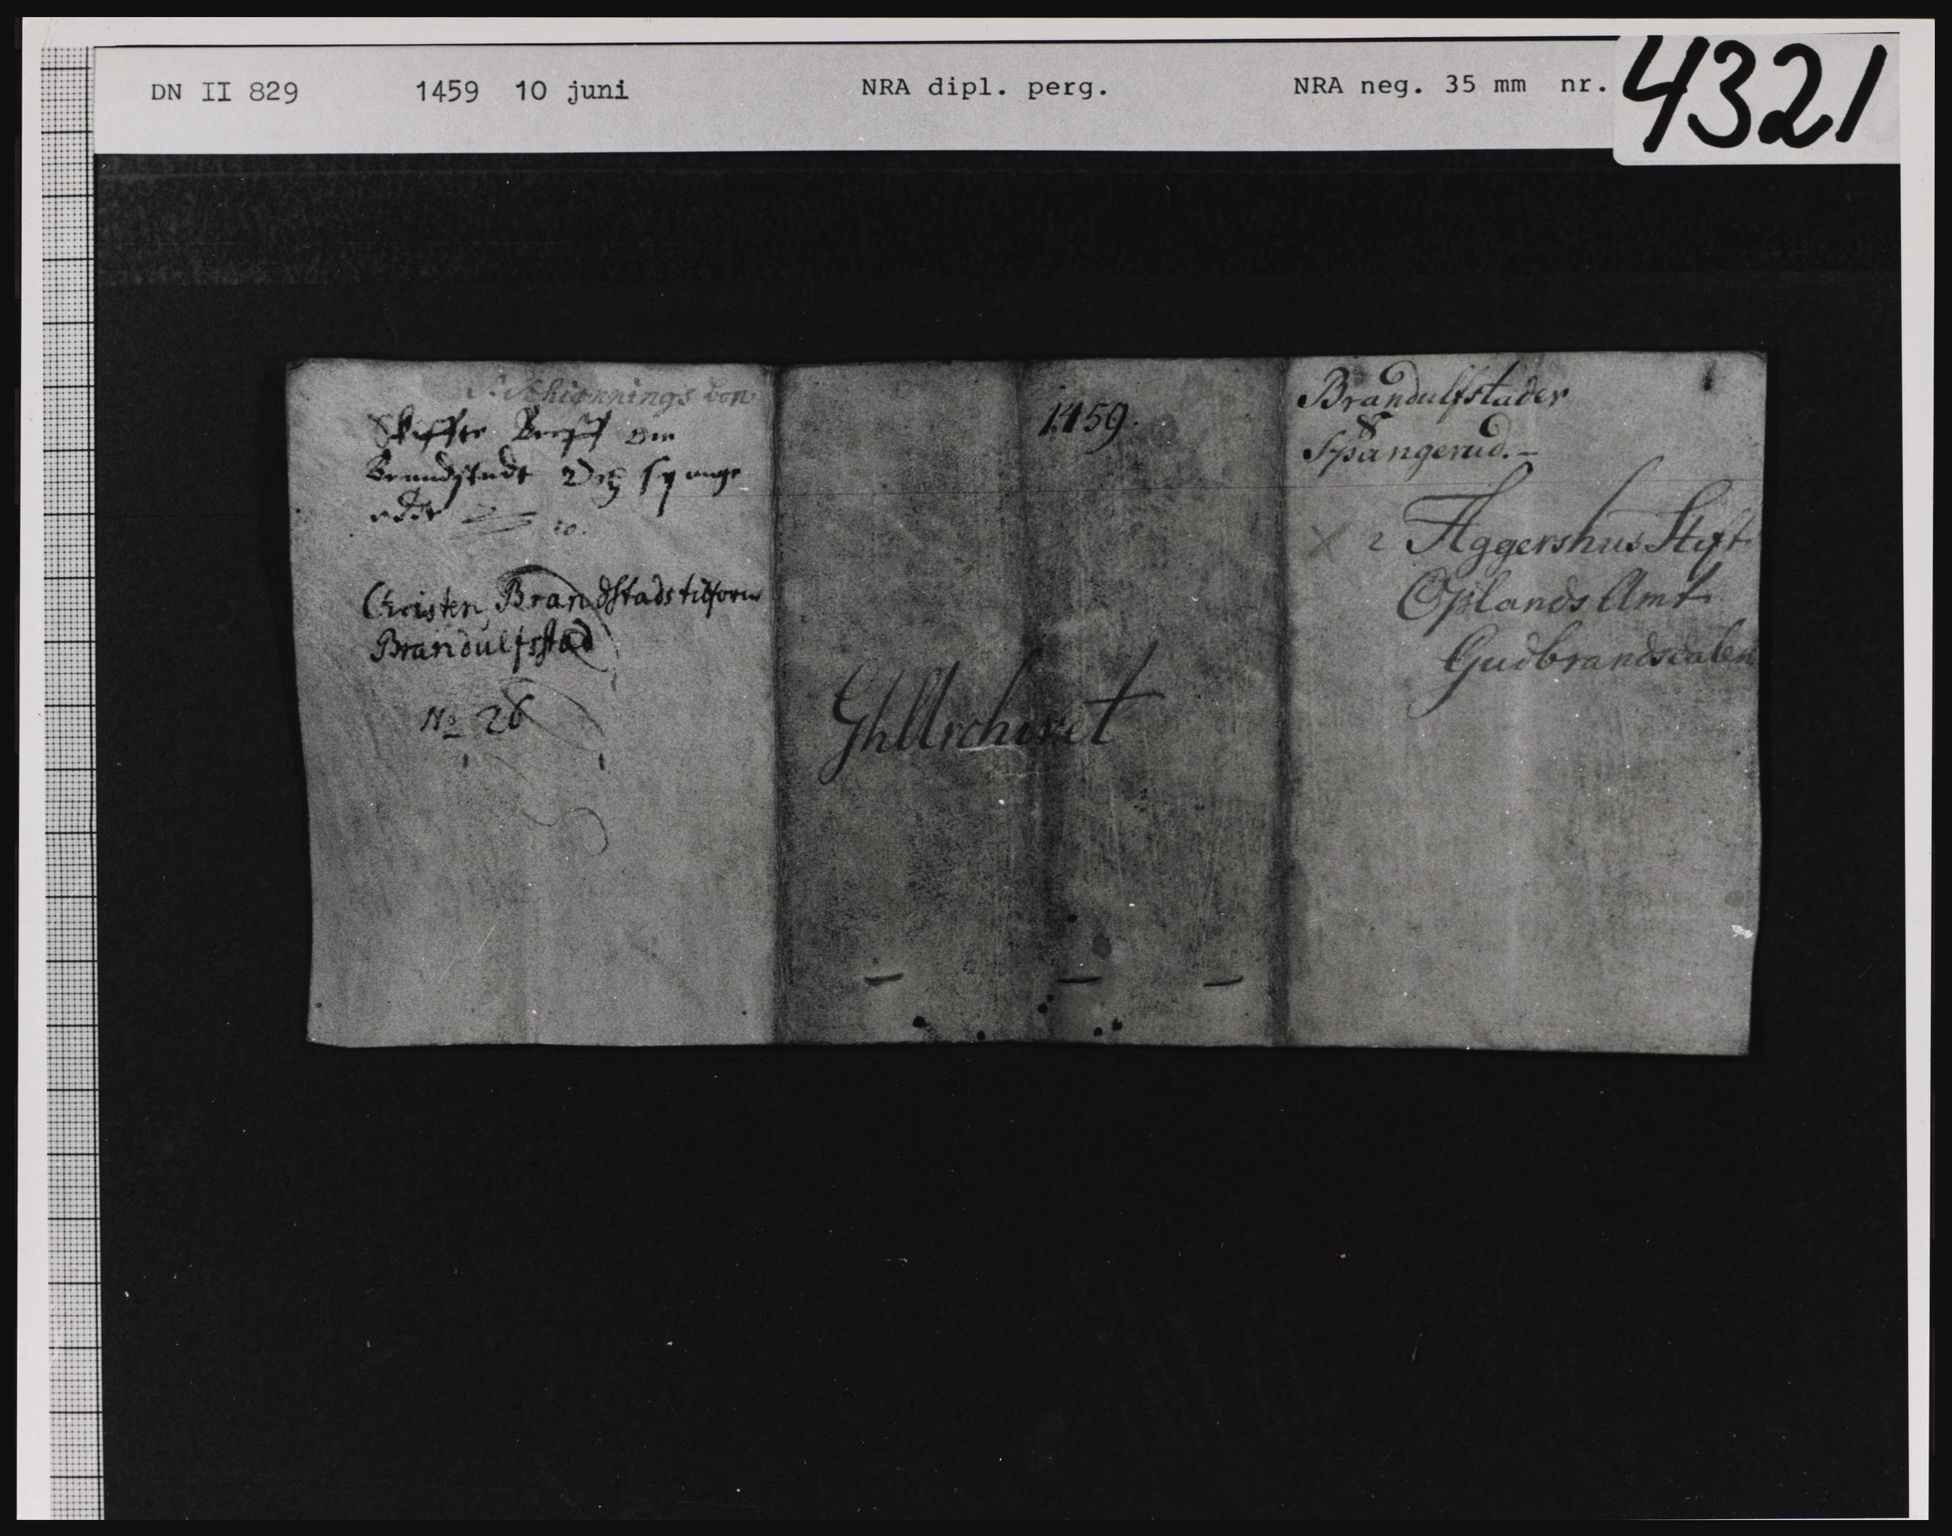 DN II 829 1459 10 juni NRA dipl. perg. NRA neg. 35 mm nr. 4321
S. Schiønnings don
Skiffte Breff om
Brandstadt Och spange
rddt
Christen Brandstads tilforn
Brandulfsstad
No 26
1459.
GhArchivet
Brandulfstader
&
Spangerud.-
X 2 Aggershus Stift
Oplands Amt
Gudbrandsdalen